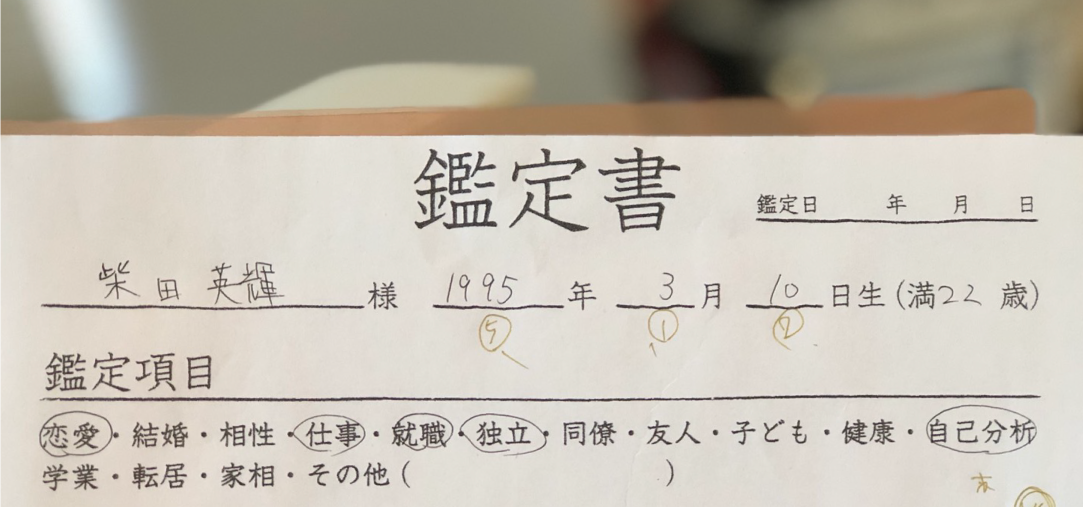 鑑定書
鑑定日 年 月 日
柴田 英輝 様 1995 年 3 月 10 日生 (満22 歳)
⑤ ① ②
鑑定項目
恋愛・結婚・相性・仕事・就職・独立・同僚・友人・子ども・健康・自己分析
学業・転居・家相・その他 ( )